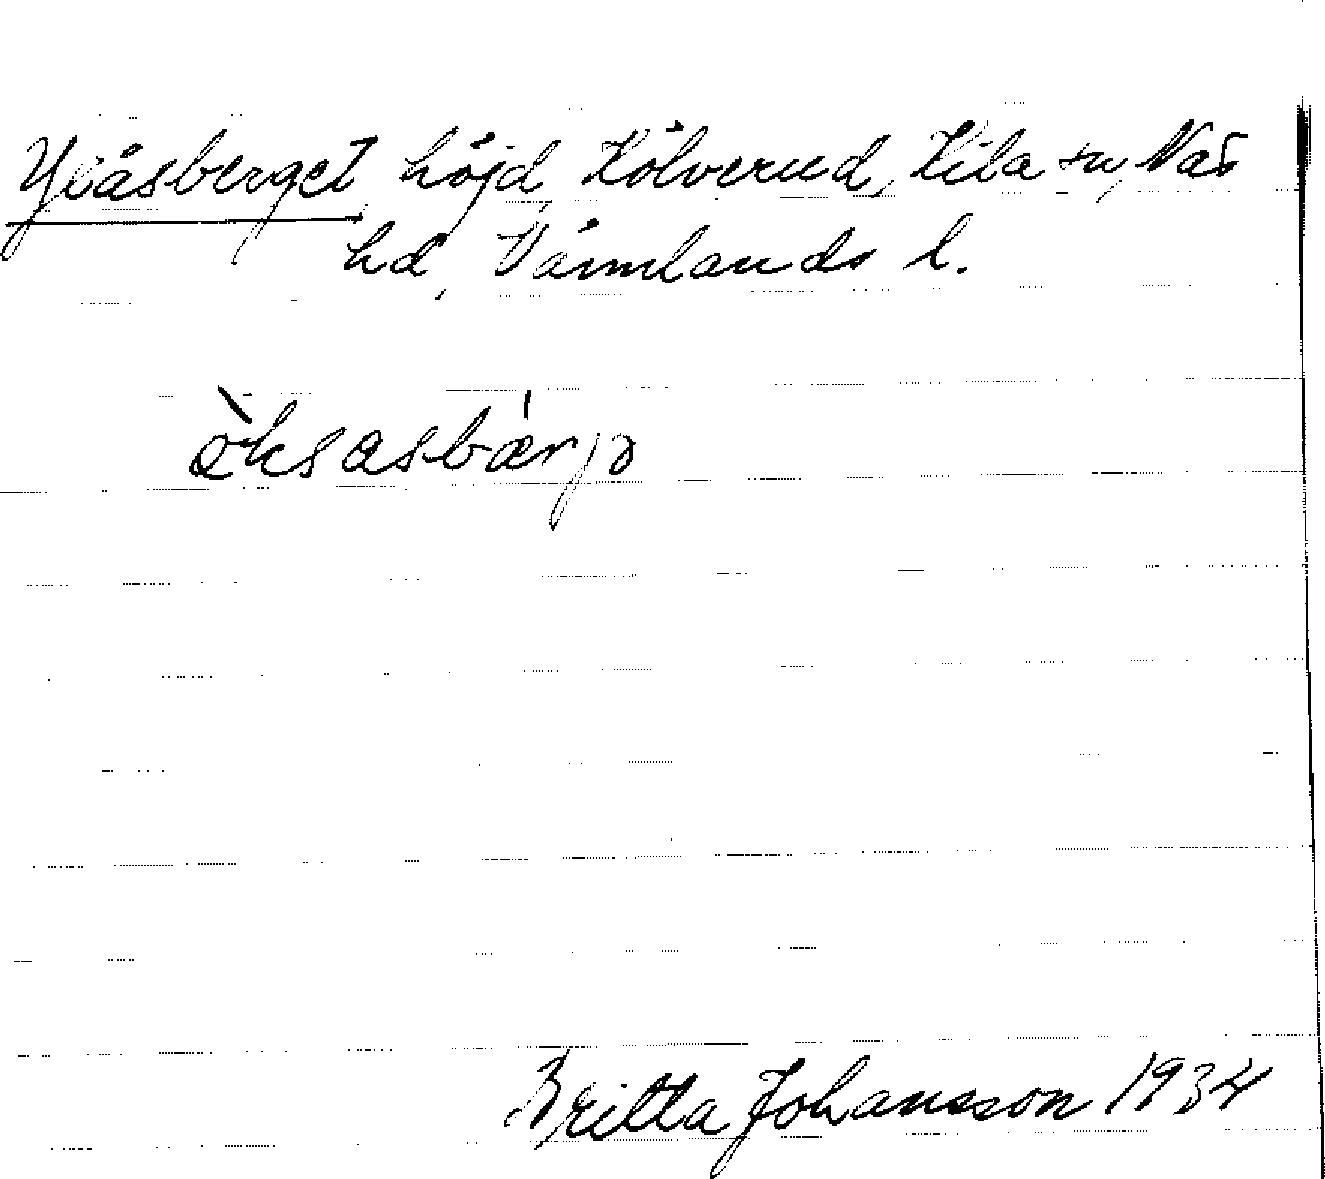 Yxåsberget, höjd, Kölverud, Kila sn, Näs
hd, Värmlands l.
Britta Johansson 1934